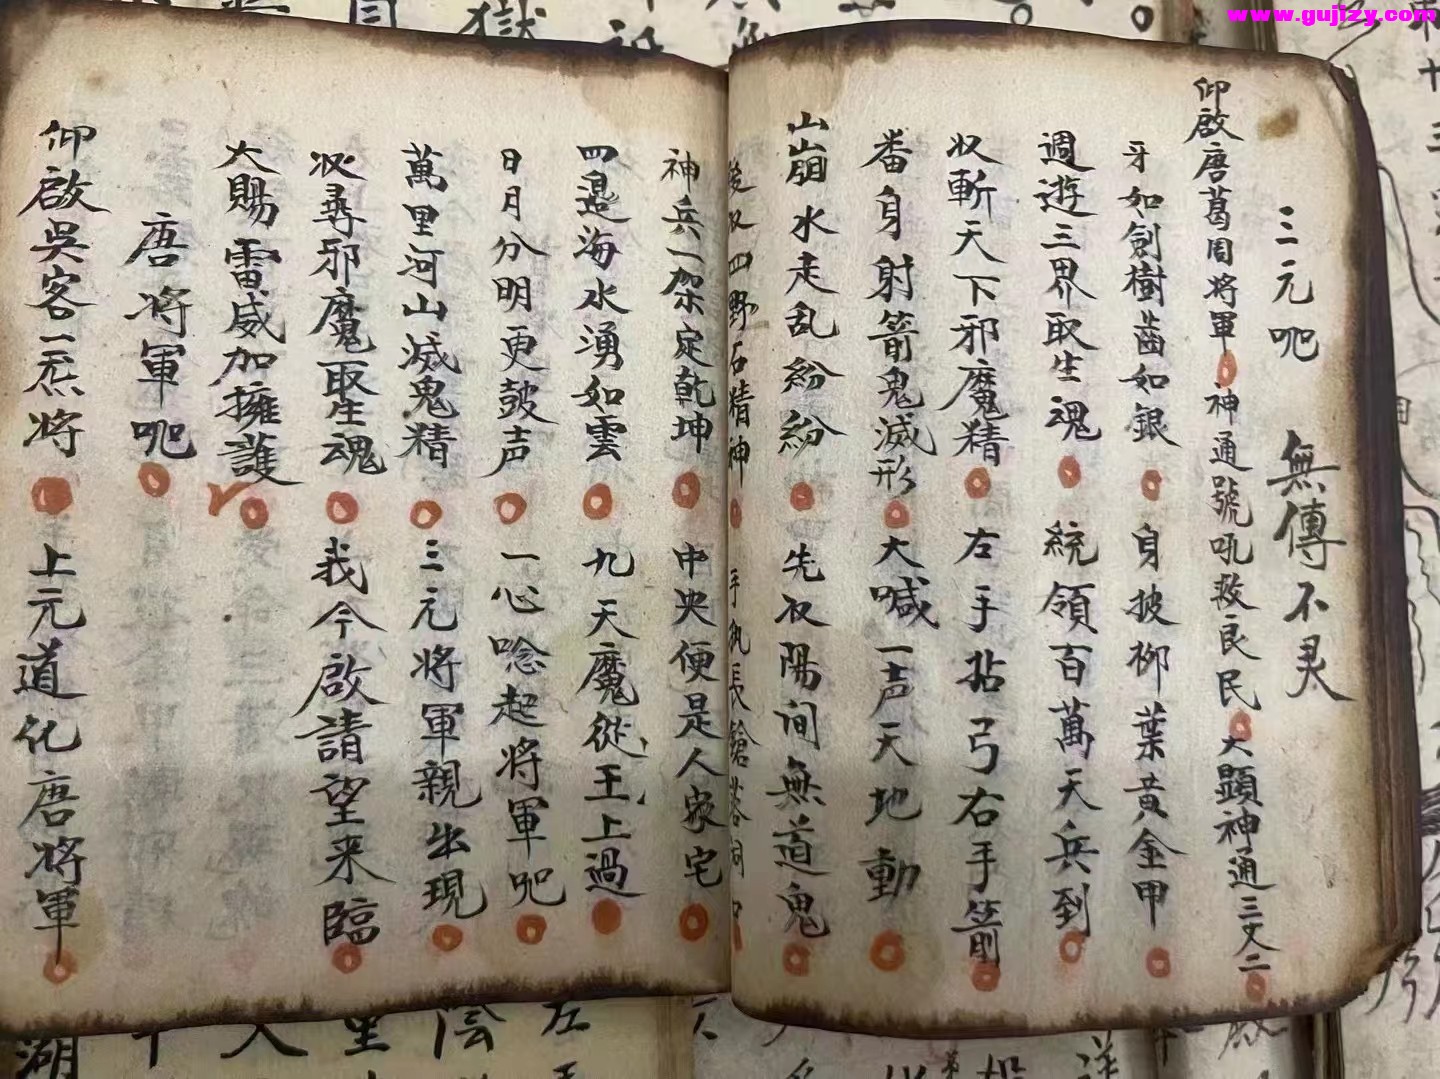 www.gujizy.com
三元咒 無傳不灵
仰啟唐葛周將軍 神通號吼救良民 大顯神通三丈二
牙如劍樹齒如銀 身披柳葉黃金甲
週遊三界取生魂 統領百萬天兵到
收斬天下邪魔精 左手拈弓右手箭
番身射箭鬼滅形 大喊一声天地動
山崩水走乱紛紛 先收陽间無道鬼
後收四野石精神 手执長鎗
神兵一架定乾坤 中央便是人家宅
四邉海水湧如雲 九天魔從王上過
日月分明更鼓声 一心唸起將軍咒
萬里河山滅鬼精 三元將軍親出現
收尋邪魔取生魂 我今啟請望来臨
大賜雷威加擁護
唐將軍咒
仰啟吳客一炁將 上元道化唐將軍